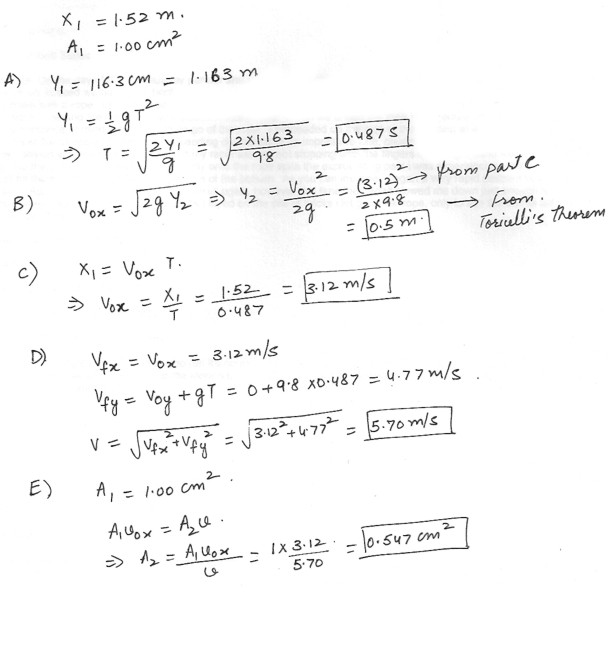 X₁ = 1.52 m.
A₁ = 1.00 cm²
A) Y₁ = 116.3 cm = 1.163 m
Y₁ = ½gT²
⇒ T = √(2Y₁/g) = √(2×1.163/9.8) = 0.487 S
B) Vox = √(2gY₂) ⇒ Y₂ = Vox²/2g = (3.12)²/2×9.8 → from part C → From.
= 0.5 m. Toricelli's theorem
C) X₁ = Vox T.
⇒ Vox = X₁/T = 1.52/0.487 = 3.12 m/s
D) Vfx = Vox = 3.12 m/s
Vfy = Voy + gT = 0+9.8 ×0.487 = 4.77 m/s.
V = √(Vfx²+Vfy²) = √(3.12²+4.77²) = 5.70 m/s
E) A₁ = 1.00 cm².
A₁vox = A₂v.
⇒ A₂ = A₁vox/v = 1×3.12/5.70 = 0.547 cm²